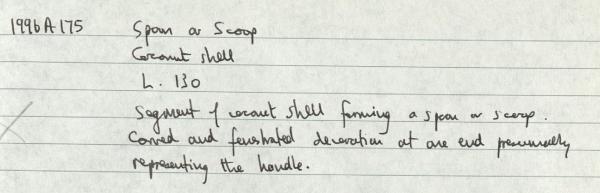 1996A175 Spoon or Scoop
Coconut shell
L. 130
Segment of coconut shell forming a spoon or scoop.
Carved and fenestrated decoration at one end presumably
representing the handle.